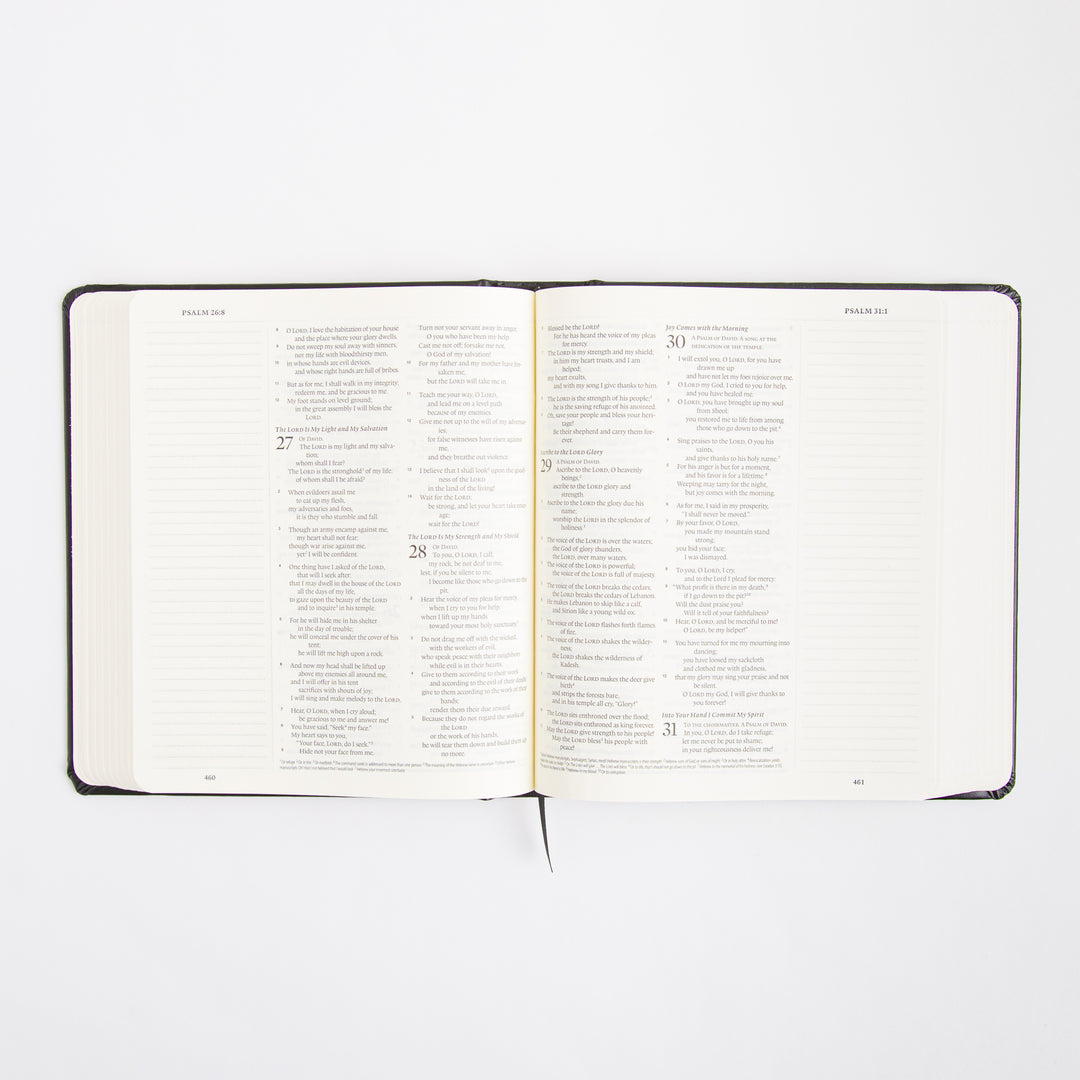 PSALM 26:8
8 O LORD, I love the habitation of your house
and the place where your glory dwells.
9 Do not sweep my soul away with sinners,
nor my life with bloodthirsty men,
10 in whose hands are evil devices,
and whose right hands are full of bribes.
11 But as for me, I shall walk in my integrity;
redeem me, and be gracious to me.
12 My foot stands on level ground;
in the great assembly I will bless the
LORD.
The LORD Is My Light and My Salvation
27 OF DAVID.
The LORD is my light and my salva-
tion;
whom shall I fear?
The LORD is the stronghold1 of my life;
of whom shall I be afraid?
2 When evildoers assail me
to eat up my flesh,
my adversaries and foes,
it is they who stumble and fall.
3 Though an army encamp against me,
my heart shall not fear;
though war arise against me,
yet2 I will be confident.
4 One thing have I asked of the LORD,
that will I seek after:
that I may dwell in the house of the LORD
all the days of my life,
to gaze upon the beauty of the LORD
and to inquire3 in his temple.
5 For he will hide me in his shelter
in the day of trouble;
he will conceal me under the cover of his
tent;
he will lift me high upon a rock.
6 And now my head shall be lifted up
above my enemies all around me,
and I will offer in his tent
sacrifices with shouts of joy;
I will sing and make melody to the LORD.
7 Hear, O LORD, when I cry aloud;
be gracious to me and answer me!
8 You have said, "Seek4 my face."
My heart says to you,
"Your face, LORD, do I seek."5
9 Hide not your face from me.
Turn not your servant away in anger,
O you who have been my help.
Cast me not off; forsake me not,
O God of my salvation!
10 For my father and my mother have for-
saken me,
but the LORD will take me in.
11 Teach me your way, O LORD,
and lead me on a level path
because of my enemies.
12 Give me not up to the will of my adversar-
ies;
for false witnesses have risen against
me,
and they breathe out violence.
13 I believe that I shall look6 upon the good-
ness of the LORD
in the land of the living!
14 Wait for the LORD;
be strong, and let your heart take cour-
age;
wait for the LORD!
The LORD Is My Strength and My Shield
28 OF DAVID.
To you, O LORD, I call;
my rock, be not deaf to me,
lest, if you be silent to me,
I become like those who go down to the
pit.
2 Hear the voice of my pleas for mercy,
when I cry to you for help,
when I lift up my hands
toward your most holy sanctuary.7
3 Do not drag me off with the wicked,
with the workers of evil,
who speak peace with their neighbors
while evil is in their hearts.
4 Give to them according to their work
and according to the evil of their deeds;
give to them according to the work of their
hands;
render them their due reward.
5 Because they do not regard the works of
the LORD
or the work of his hands,
he will tear them down and build them up
no more.
460
PSALM 31:1
6 Blessed be the LORD!
For he has heard the voice of my pleas
for mercy.
7 The LORD is my strength and my shield;
in him my heart trusts, and I am
helped;
my heart exults,
and with my song I give thanks to him.
8 The LORD is the strength of his people;1
he is the saving refuge of his anointed.
9 Oh, save your people and bless your heri-
tage!
Be their shepherd and carry them for-
ever.
Ascribe to the LORD Glory
29 A PSALM OF DAVID.
Ascribe to the LORD, O heavenly
beings,2
ascribe to the LORD glory and
strength.
2 Ascribe to the LORD the glory due his
name;
worship the LORD in the splendor of
holiness.3
3 The voice of the LORD is over the waters;
the God of glory thunders,
the LORD, over many waters.
4 The voice of the LORD is powerful;
the voice of the LORD is full of majesty.
5 The voice of the LORD breaks the cedars;
the LORD breaks the cedars of Lebanon.
6 He makes Lebanon to skip like a calf,
and Sirion like a young wild ox.
7 The voice of the LORD flashes forth flames
of fire.
8 The voice of the LORD shakes the wilder-
ness;
the LORD shakes the wilderness of
Kadesh.
9 The voice of the LORD makes the deer give
birth4
and strips the forests bare,
and in his temple all cry, "Glory!"
10 The LORD sits enthroned over the flood;
the LORD sits enthroned as king forever.
11 May the LORD give strength to his people!
May the LORD bless5 his people with
peace!
Joy Comes with the Morning
30 A PSALM OF DAVID. A SONG AT THE
DEDICATION OF THE TEMPLE.
1 I will extol you, O LORD, for you have
drawn me up
and have not let my foes rejoice over me.
2 O LORD my God, I cried to you for help,
and you have healed me.
3 O LORD, you have brought up my soul
from Sheol;
you restored me to life from among
those who go down to the pit.6
4 Sing praises to the LORD, O you his
saints,
and give thanks to his holy name.7
5 For his anger is but for a moment,
and his favor is for a lifetime.8
Weeping may tarry for the night,
but joy comes with the morning.
6 As for me, I said in my prosperity,
"I shall never be moved."
7 By your favor, O LORD,
you made my mountain stand
strong;
you hid your face;
I was dismayed.
8 To you, O LORD, I cry,
and to the Lord I plead for mercy:
9 "What profit is there in my death,9
if I go down to the pit?10
Will the dust praise you?
Will it tell of your faithfulness?
10 Hear, O LORD, and be merciful to me!
O LORD, be my helper!"
11 You have turned for me my mourning into
dancing;
you have loosed my sackcloth
and clothed me with gladness,
12 that my glory may sing your praise and not
be silent.
O LORD my God, I will give thanks to
you forever!
Into Your Hand I Commit My Spirit
31 TO THE CHOIRMASTER. A PSALM OF DAVID.
In you, O LORD, do I take refuge;
let me never be put to shame;
in your righteousness deliver me!
461